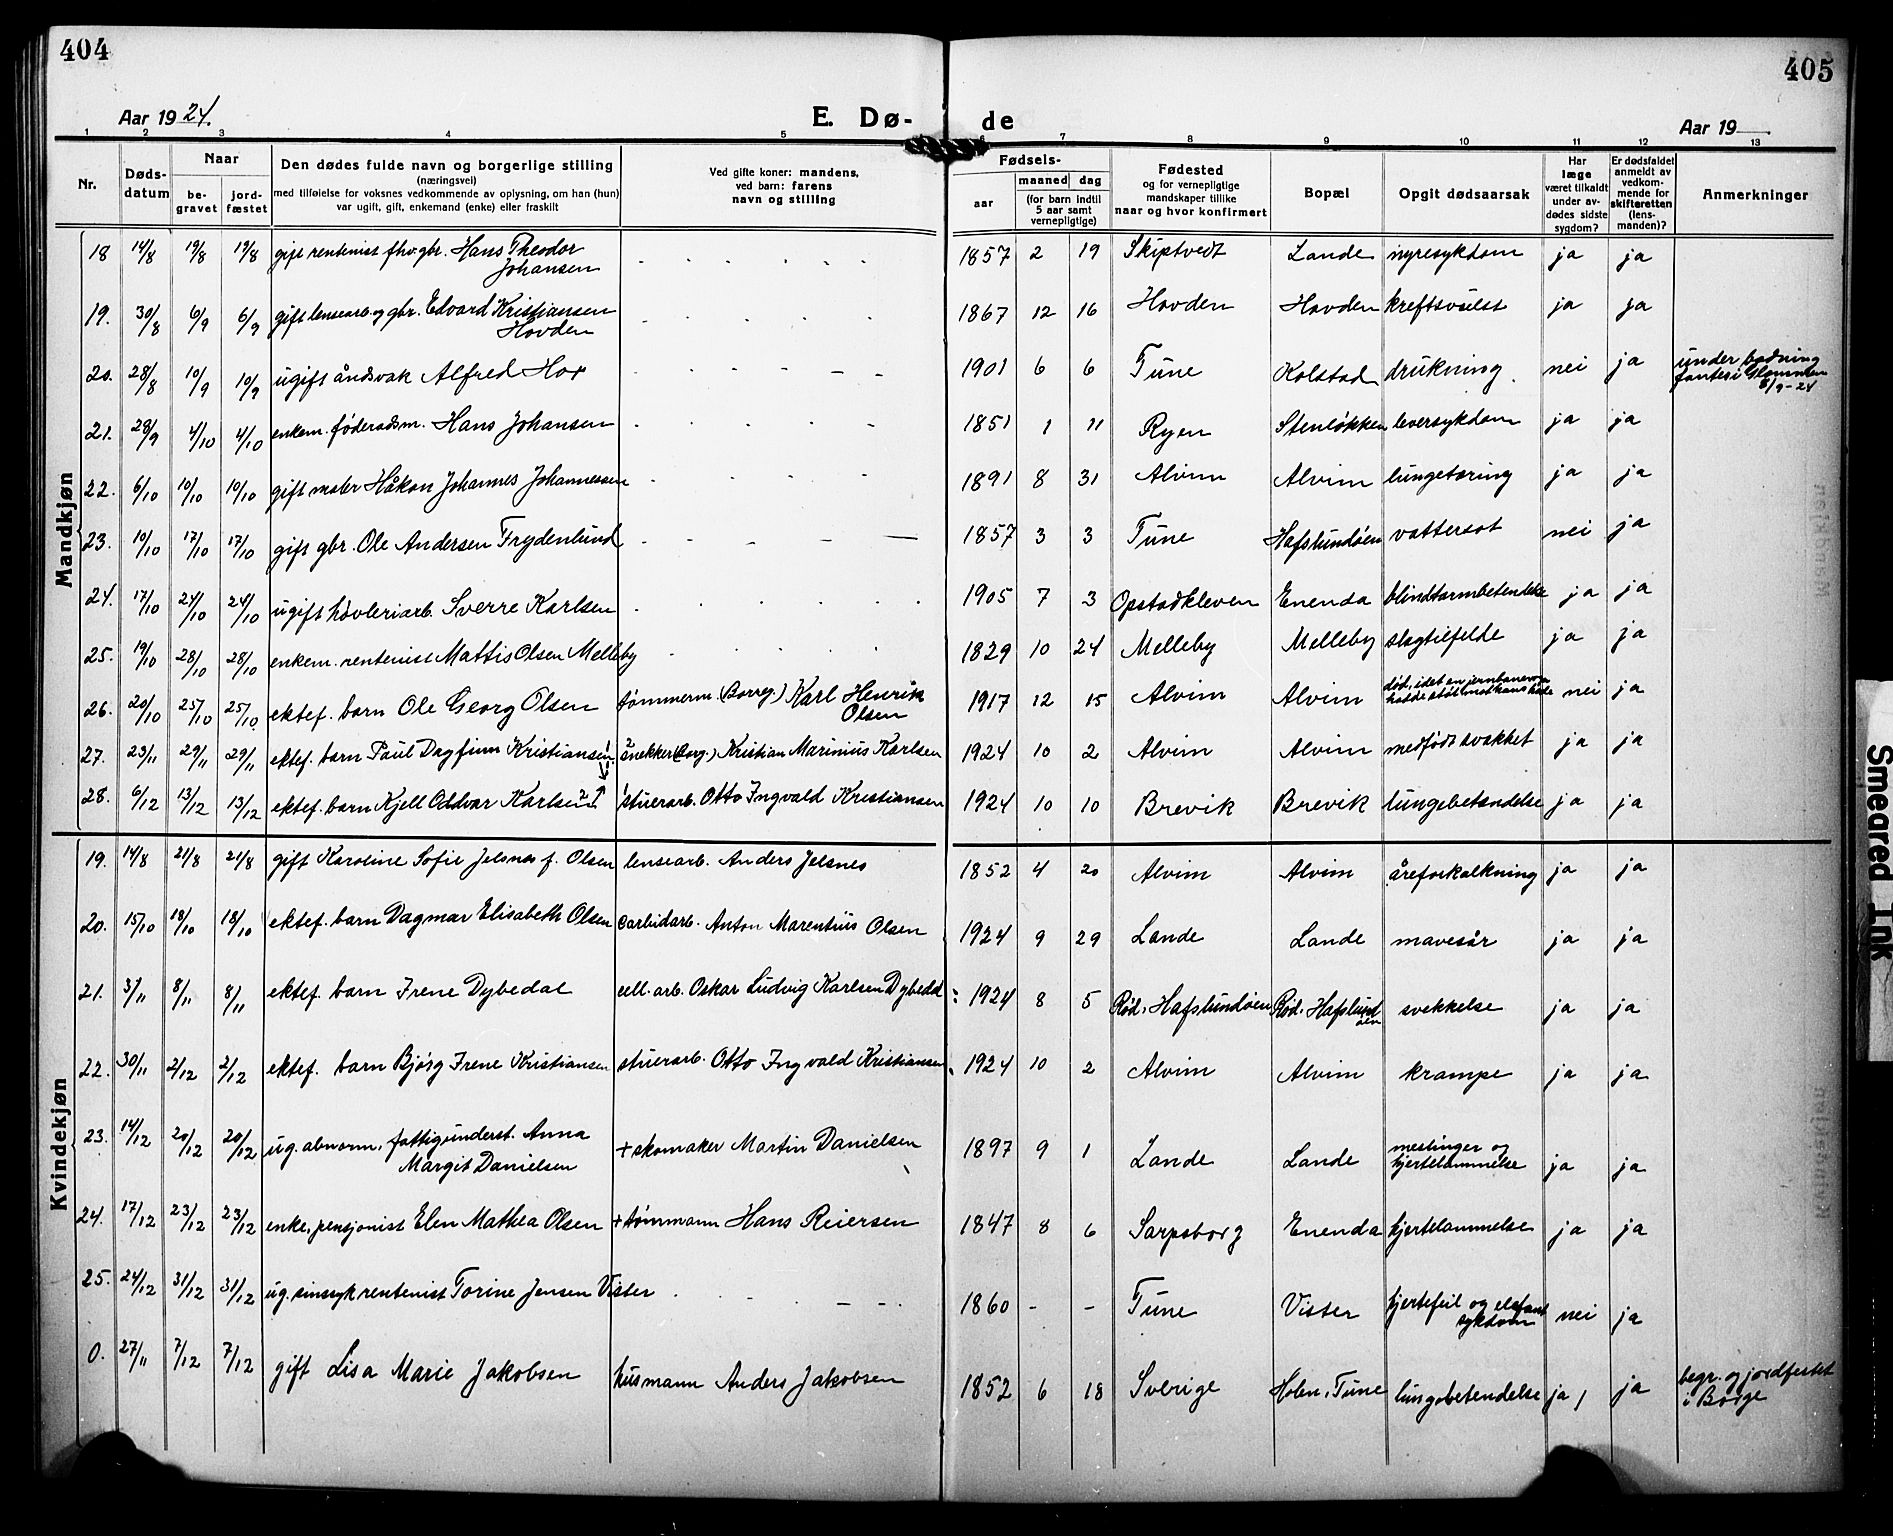 404
405
Aar 1924.
E. Dø-
de
Aar 19
1 2 3 4 5 6 7 8 9 10 11 12 13
Nr.
Døds-
datum
Naar
be-
gravet
jord-
fæstet
Den dødes fulde navn og borgerlige stilling
(næringsvei)
med tilføielse for voksnes vedkommende av oplysning, om han (hun)
var ugift, gift, enkemand (enke) eller fraskilt
Ved gifte koner: mandens,
ved barn: farens
navn og stilling
Fødsels-
aar
maaned
dag
(for barn indtil
5 aar samt
vernepligtige)
Fødested
og for vernepligtige
mandskaper tillike
naar og hvor konfirmert
Bopæl
Opgit dødsaarsak
Har
læge
været tilkaldt
under av-
dødes sidste
sygdom?
Er dødsfaldet
anmeldt av
vedkom-
mende for
skifteretten
(lens-
manden)?
Anmerkninger
Mandkjøn
18 14/8 19/8 19/8 gift rentenist fhv. gbr. Hans Theodor Johansen 1857 2 19 Skiptvedt Lande nyresykdom ja ja
19. 30/8 6/9 6/9 gift lensearb. og gbr. Edvard Kristiansen Hovden 1867 12 16 Hovden Hovden kreftsvulst ja ja
20. 28/8 10/9 10/9 ugift åndsvak Alfred Hox 1901 6 6 Tune Kolstad drukning nei ja under badning funtet i Glommen 8/9-24
21. 28/9 4/10 4/10 enkem. føderaadsm. Hans Johansen 1851 1 11 Ryen Stenløkken leversykdom ja ja
22. 6/10 10/10 10/10 gift maler Håkon Johannes Johannessen 1891 8 31 Alvim Alvim lungetæring ja ja
23. 10/10 17/10 17/10 gift gbr. Ole Andersen Frydenlund 1857 3 3 Tune Hafslundøen vattersot nei ja
24. 17/10 24/10 24/10 ugift høvleriarb. Sverre Karlsen 1905 7 3 Opstadkleven Enenda blindtarmbetendelse ja ja
25. 19/10 28/10 28/10 enkem. rentenist Mattis Olsen Melleby 1829 10 24 Melleby Melleby slagtilfelde ja ja
26. 20/10 25/10 25/10 ektef. barn Ole Georg Olsen tømmerm. (Borreg.) Karl Henrik Olsen 1917 12 15 Alvim Alvim død, idet en jernbanevogn hadde støt mot hans hode nei ja
27. 23/11 29/11 29/11 ektef. barn Paul Dagfinn Kristiansen 1 2 snekker (Borg.) Kristian Marinius Karlsen 1924 10 2 Alvim Alvim medfødt svakket ja ja
28. 6/12 13/12 13/12 ektef. barn Kjell Oddvar Karlsen 2 1 stuerarb. Otto Ingvald Kristiansen 1924 10 10 Brevik Brevik lungebetendelse ja ja
Kvindekjøn
19. 14/8 21/8 21/8 gift Karoline Sofie Jelsnes f. Olsen lensearb. Anders Jelsnes 1852 4 20 Alvim Alvim åreforkalkning ja ja
20. 15/10 18/10 18/10 ektef. barn Dagmar Elisabeth Olsen carbidarb. Anton Marentius Olsen 1924 9 29 Lande Lande mavesår ja ja
21. 3/11 8/11 8/11 ektef. barn Irene Dybedal cell. arb. Oskar Ludvig Karlsen Dybedal 1924 8 5 Rød, Hafslundøen Rød, Hafslundøen svekkelse ja ja
22. 30/11 2/12 2/12 ektef. barn Bjørg Irene Kristiansen stuerarb. Otto Ingvald Kristiansen 1924 10 2 Alvim Alvim krampe ja ja
23. 14/12 20/12 20/12 ug. abnorm, fattigunderst. Anna Margit Danielsen + skomaker Martin Danielsen 1897 9 1 Lande Lande meslinger og hjertelammelse ja ja
24. 17/12 23/12 23/12 enke, pensjonist Elen Mathea Olsen + tømmann Hans Reiersen 1847 8 6 Sarpsborg Enenda hjertelammelse ja ja
25. 24/12 31/12 31/12 ug. sinssyk rentenist Torine Jensen Vister 1860 - - Tune Vister hjertefeil og elefantsykdom nei ja
0. 27/11 7/12 7/12 gift Lisa Marie Jakobsen husmann Anders Jakobsen 1852 6 18 Sverige Holen, Tune lungebetendelse ja ja begr. og jordfestet i Borge
Smeared Ink